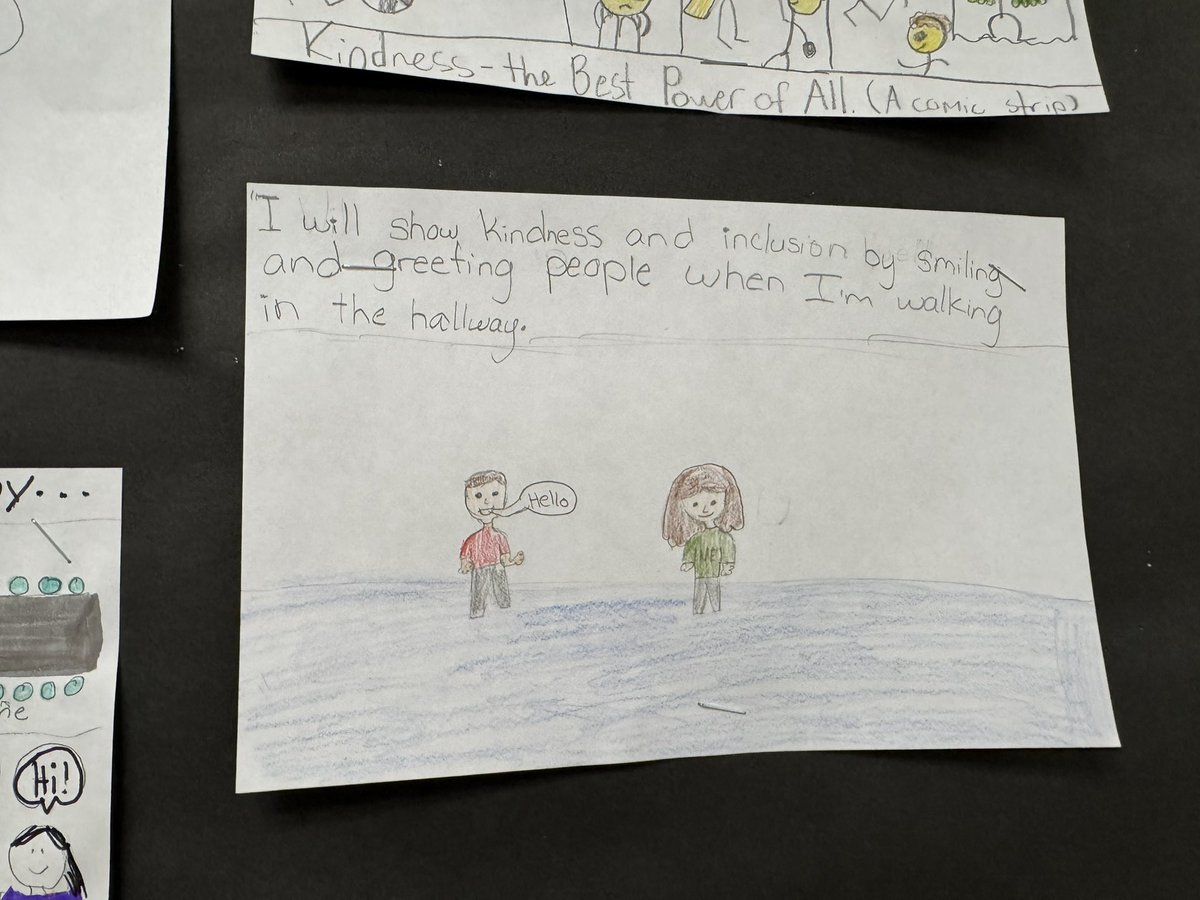 Kindness-the Best Power of All. (A comic strip)
"I will show kindness and inclusion by smiling
and greeting people when I'm walking
in the hallway.
Hello
Hi!